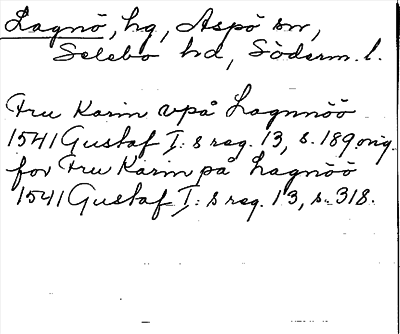 Lagnö, hg, Aspö sn,
Selebo hd, Söderm. l.
Fru Karin vpå Lagnnöö
1541 Gustaf I:s reg. 13, s. 189 orig.
for Fru Karin på Lagnöö
1541 Gustaf I:s reg. 13, s. 318.